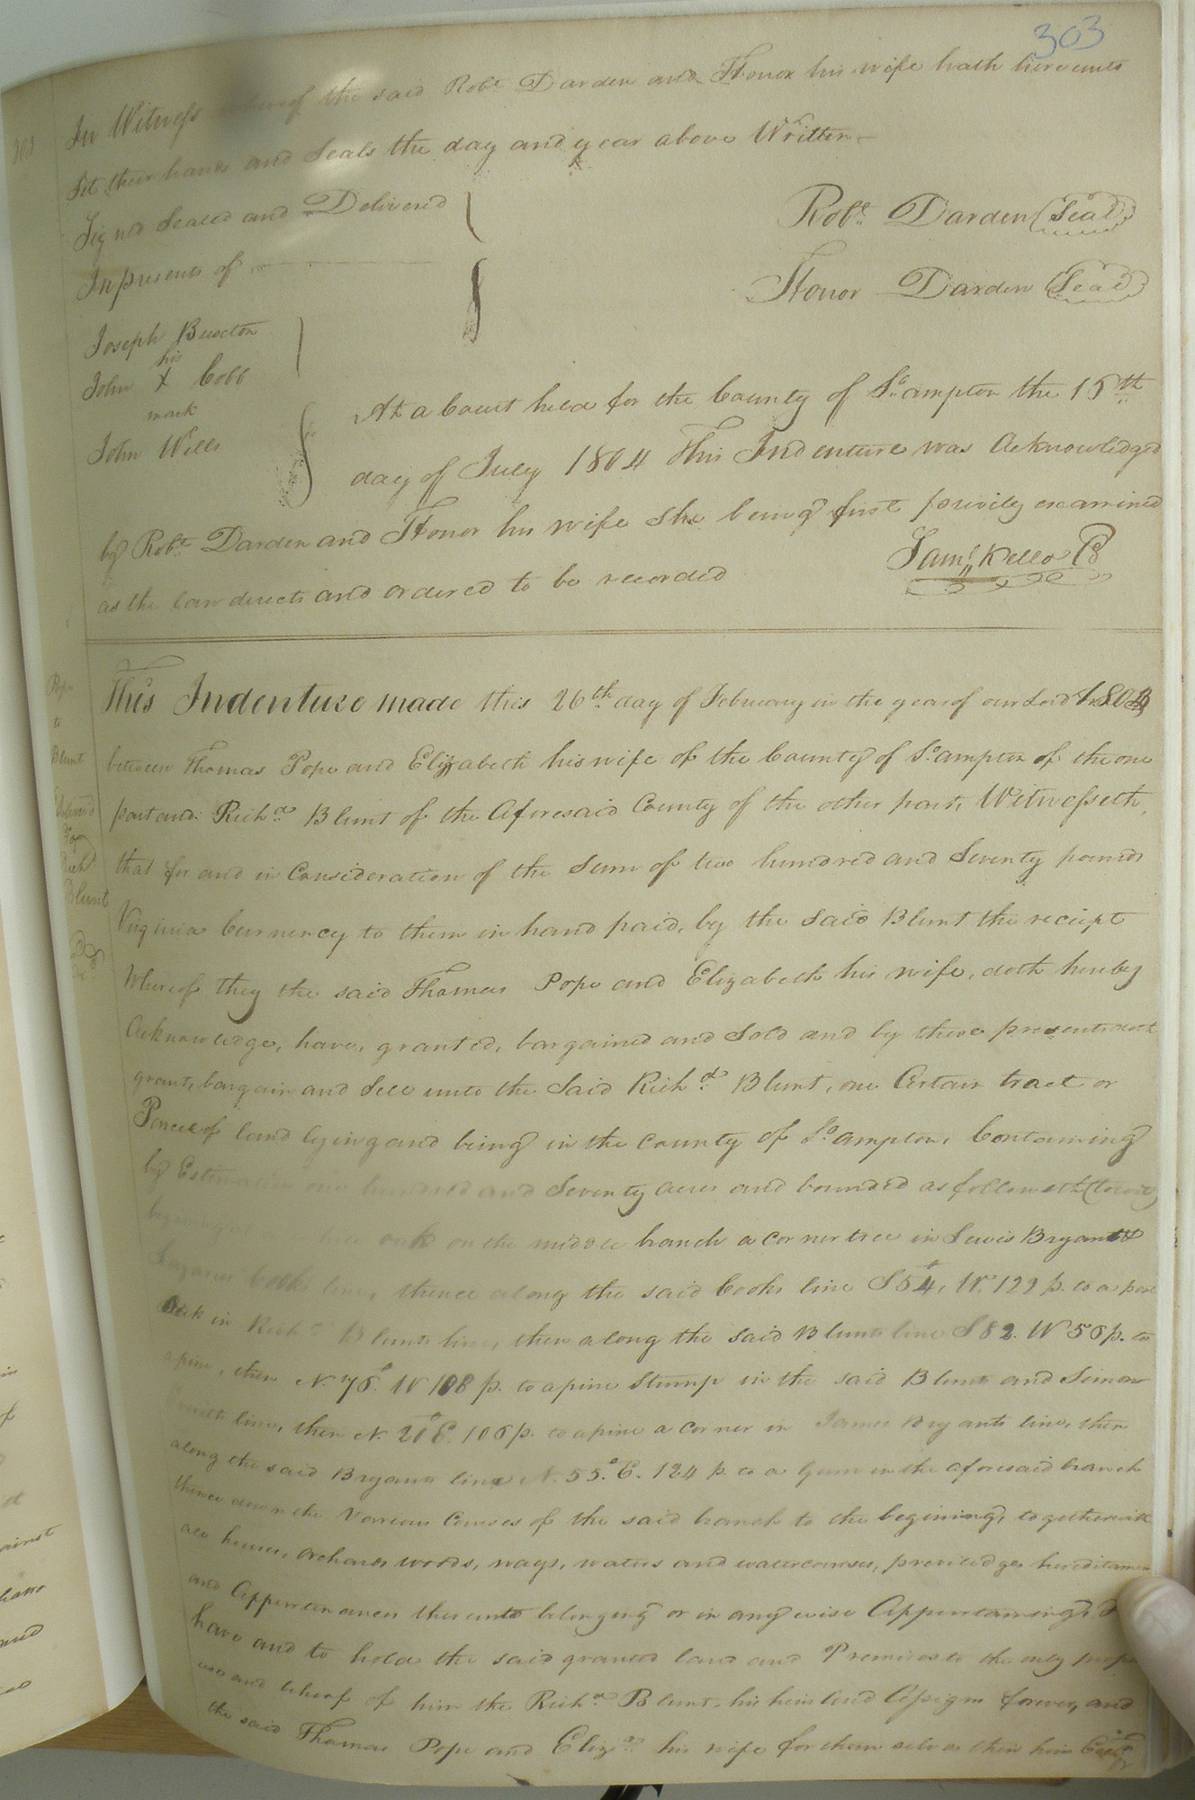 303
In Witness whereof the said Robt Darden and Honor his wife hath hereunto
Set their hands and Seals the day and year above Written
Signed Sealed and Delivered
In presents of
Robt. Darden (Seal)
Honor Darden (Seal)
Joseph Buxton
his
John X Cobb
mark
John Wills
At a Court held for the County of So.ampton the 15th
day of July 1804 This Indenture was Acknowledged
by Robt Darden and Honor his wife She being first privily examined
as the law directs and ordered to be recorded
Saml. Kello C
Pope
to
Blunt
Richd
Blunt
This Indenture made this 26th day of February in the year of our Lord
between Thomas Pope and Elizabeth his wife of the County of So.ampton of the one
part and Richd. Blunt of the Aforesaid County of the other part, Witnesseth,
that for and in Consideration of the Sum of two hundred and Seventy pounds
Virginia Currency to them in hand paid, by the said Blunt the receipt
Whereof they the said Thomas Pope and Elizabeth his wife, doth hereby
Acknowledge, have, granted, bargained and Sold and by these presents doth
grant, bargain and Sell unto the Said Richd. Blunt, one Certain tract or
Parcel of land lying and being in the County of So.ampton, Containing
by Estimation one hundred and Seventy acres and bounded as followeth (towit)
oak on the middle branch a corner tree in Lewis Bryants
line, thence along the said Cooks line S 54. W. 129 p. to a post
oak in Richd Blunts line, then along the said Blunts line S 82. W 56 p. to
a pine, then N. 76. W 108 p. to a pine Stump in the said Blunts and Simon
line, then N. 20 E. 106 p. to a pine a corner in James Bryants line, then
along the said Bryants line N. 55. E. 124 p to a Gum in the aforesaid branch
thence down the Various Courses of the said branch to the begining, together with
all houses, orchards woods, ways, waters and watercourses, priviledges hereditamen
and Appurtenances thereunto belonging or in any wise Appurtaining, To
have and to hold the said granted land and Premises to the only proper
use and behoof of him the Richd Blunt, his heirs and Assigns forever, and
the said Thomas Pope and Elizth his wife for themselves their heirs